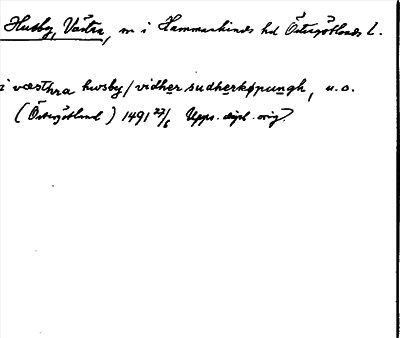 Husby, Västra, m i Hammarkinds hd Östergötlands l.
i væsthra husby/vidher sudherköpungh, u.o.
(Östergötland) 1491 27/6 Upps. dipl. orig.